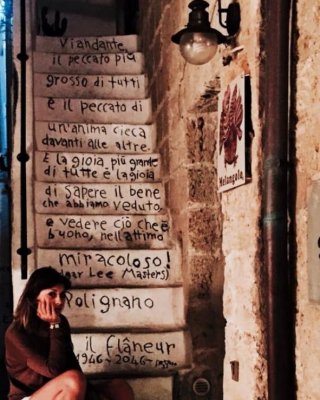 Viandante,
il peccato più
grosso di tutti
è il peccato di
un'anima cieca
davanti alle altre.
E la gioia più grande
di tutte è la gioia
di sapere il bene
che abbiamo veduto,
e vedere ciò che è
buono, nell'attimo
miracoloso!
(dear Lee Masters)
Polignano
il flâneur
1946-2046-
Melangola